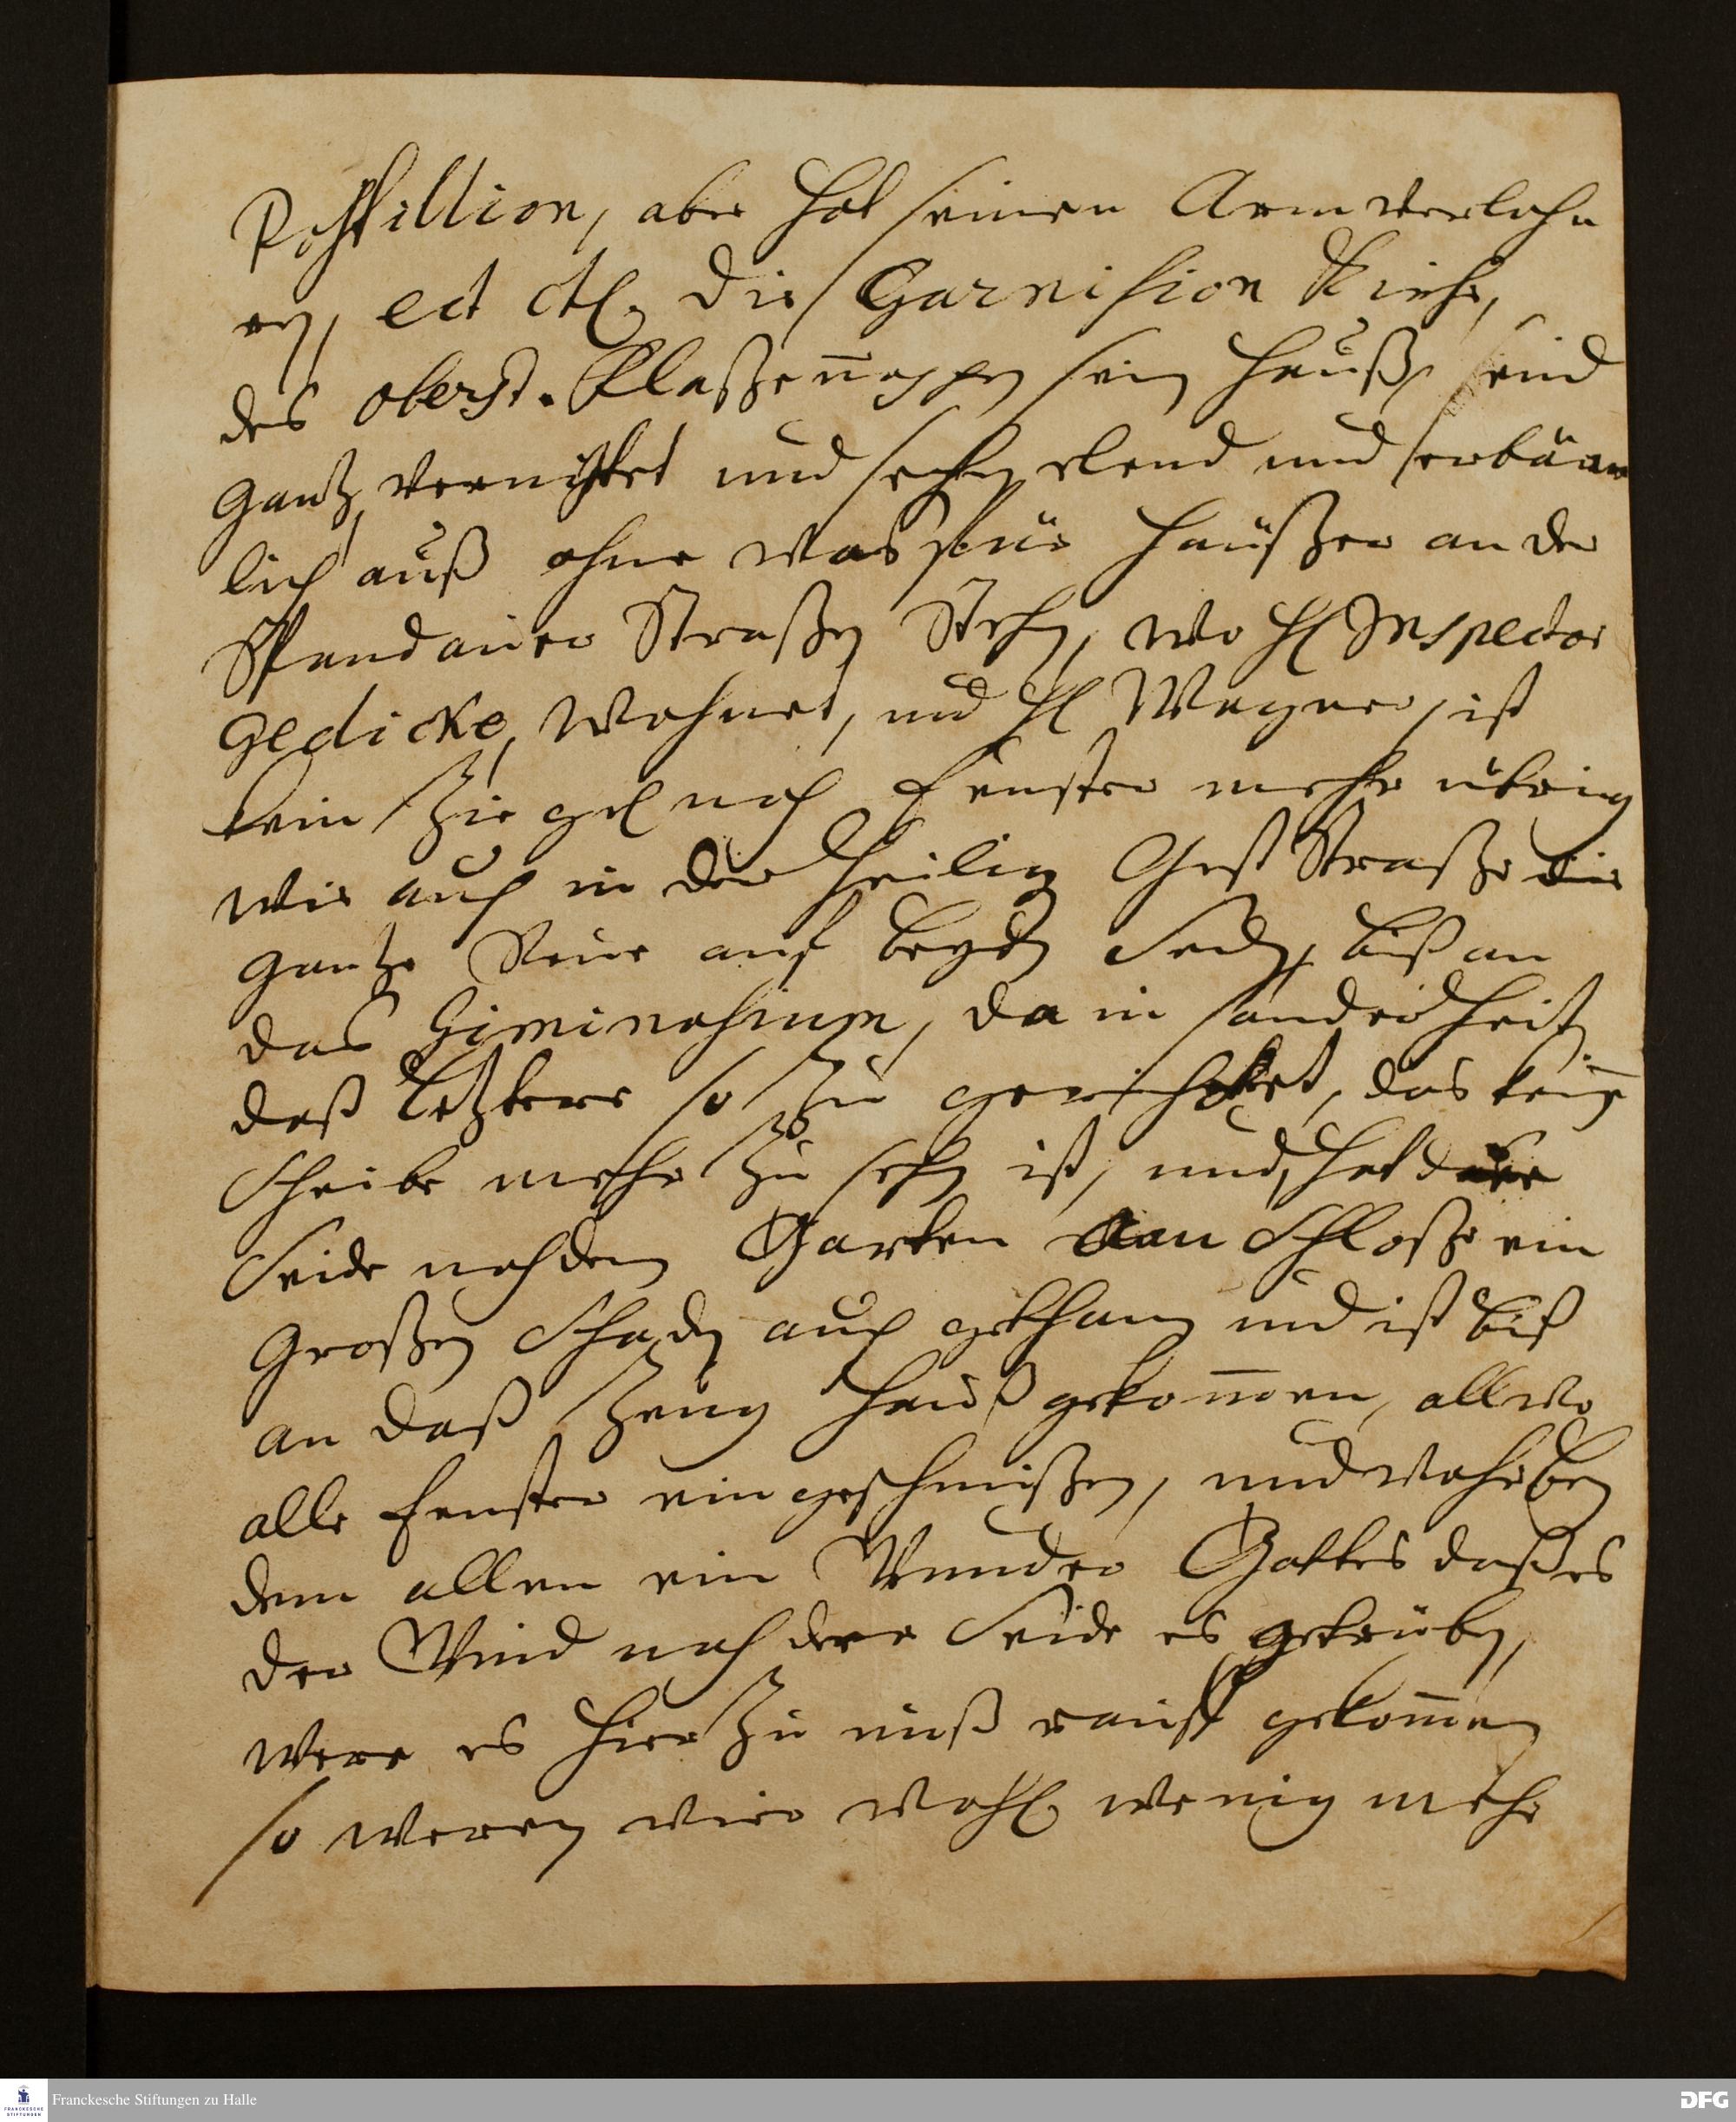 Postillion, aber hat seinen Arm verlohr
en, ect etc. die Garnision Kirche,
des oberst. Glaßennapen sein Hauß, seind
gantz vernichtet und sehen elend und erbärm
lich auß ohne was für Häußer an der
Spandauer Straßen Stehen, wo H. Inspector
Gedicke, Wohnet, und H. Wagner, ist
kein Ziegel noch Fenster mehr übrig
wie auch in der Heilig Gest Straße die
gantze Reiie auf beyden Seiden, biß an
das Giminasium, da in sonderheit
daß letztere so zu gerichtet, das kein
Scheibe mehr zu sehen ist, und, hat
Seide nach dem Garten am Schloße ein
Großen Schaden auch gethan und ist biß
an daß Zeug Hauß gekommen, allwo
alle Fenster ein geschmißen, und wahr bey
dem allen ein Wunder Gottes daß es
der Wind nach dere Seide es getrieben,
were es hier zu unß rauff gekommen
so weren wier wohl wenig mehr
Franckesche Stiftungen zu Halle
DFG